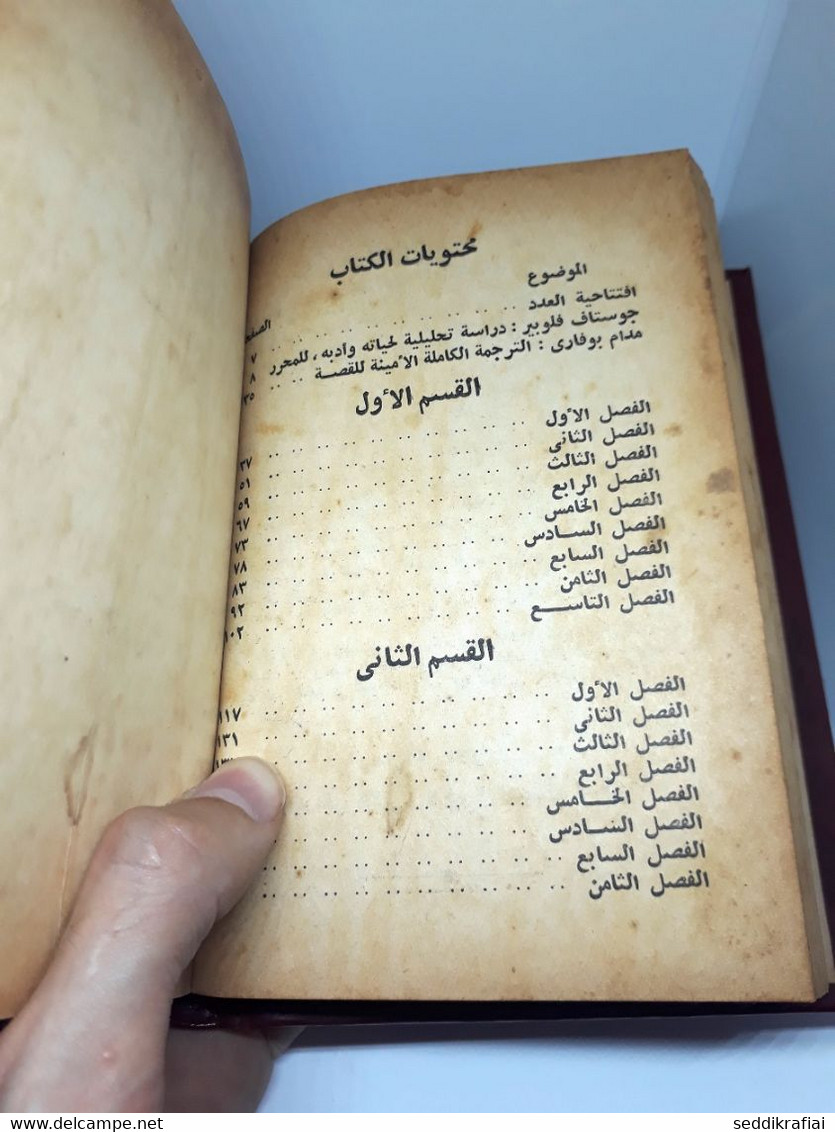 محتويات الكتاب
الموضوع
افتتاحية العدد .. .. .. .. .. .. .. .. ٧
جوستاف فلوبير : دراسة تحليلية لحياته وأدبه ، للمحرر ٨
مدام بوفارى : الترجمة الكاملة الأمينة للقصة .. .. ٣٥
القسم الأول
الفصل الأول .. .. .. .. .. .. .. .. .. ٣٧
الفصل الثانى .. .. .. .. .. .. .. .. .. ٥١
الفصل الثالث .. .. .. .. .. .. .. .. .. ٥٩
الفصل الرابع .. .. .. .. .. .. .. .. .. ٦٧
الفصل الخامس .. .. .. .. .. .. .. .. .. ٧٣
الفصل السادس .. .. .. .. .. .. .. .. .. ٧٨
الفصل السابع .. .. .. .. .. .. .. .. .. ٨٣
الفصل الثامن .. .. .. .. .. .. .. .. .. ٩٢
الفصل التاسع .. .. .. .. .. .. .. .. .. ١٠٢
القسم الثانى
الفصل الأول .. .. .. .. .. .. .. .. .. ١١٧
الفصل الثانى .. .. .. .. .. .. .. .. .. ١٣١
الفصل الثالث .. .. .. .. .. .. .. .. ..
الفصل الرابع .. .. .. .. .. .. .. .. ..
الفصل الخامس .. .. .. .. .. .. .. .. ..
الفصل السادس .. .. .. .. .. .. .. .. ..
الفصل السابع .. .. .. .. .. .. .. .. ..
الفصل الثامن .. .. .. .. .. .. .. .. ..
www.delcampe.net
seddikrafiai